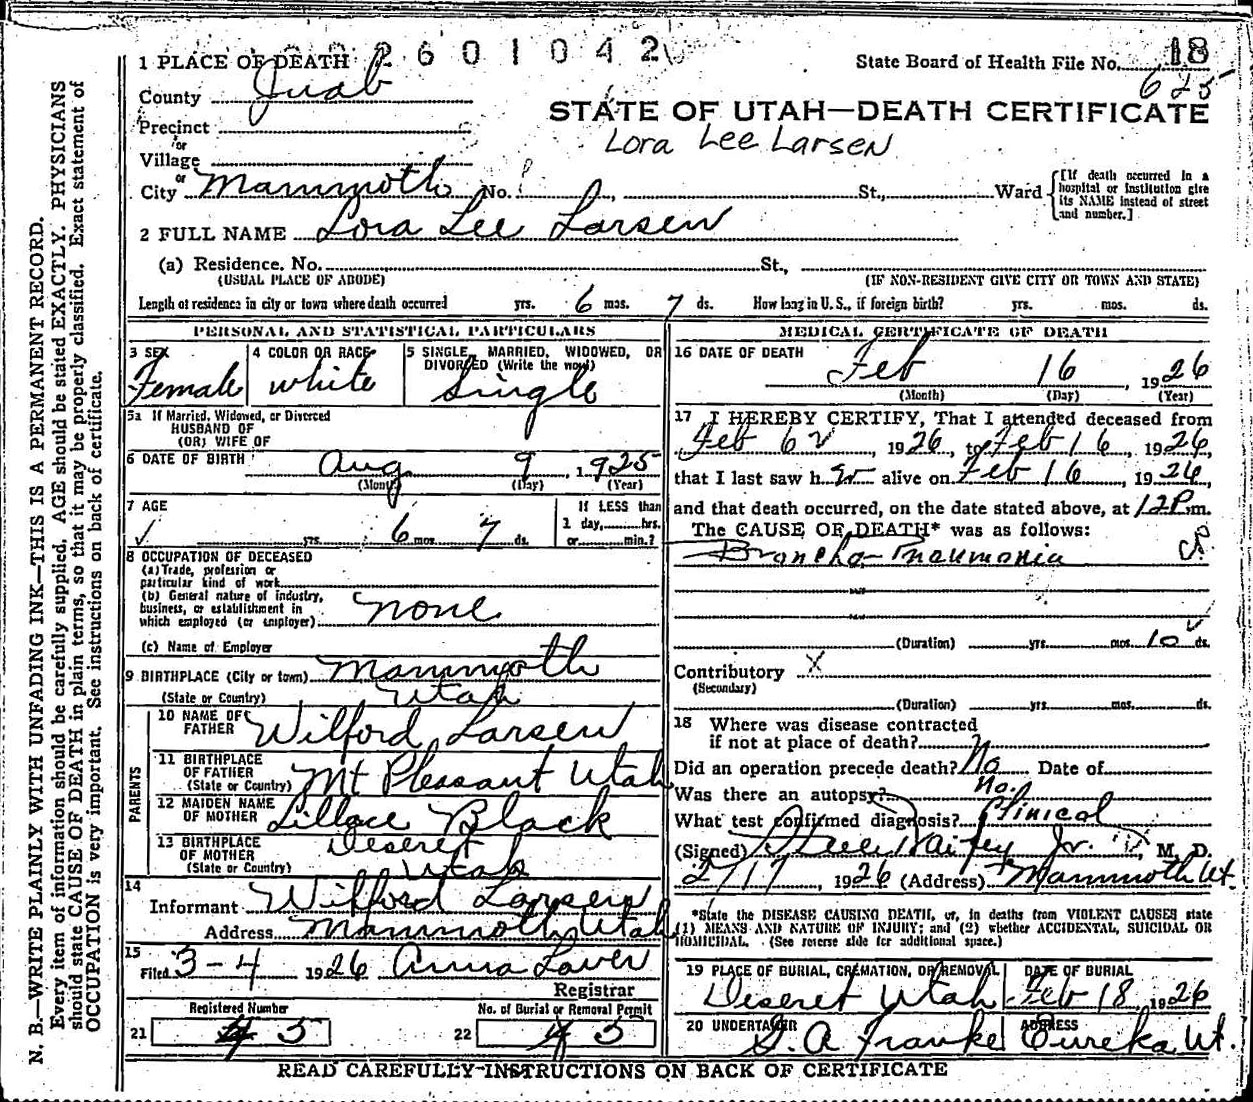 2601042
1 PLACE OF DEATH
State Board of Health File No. 18
625
County Juab
STATE OF UTAH—DEATH CERTIFICATE
Precinct
Lora Lee Larsen
or
Village
or
City Mammoth No. St., Ward
[If death occurred in a hospital or institution give its NAME instead of street and number.]
2 FULL NAME Lora Lee Larsen
(a) Residence. No. St.,
(USUAL PLACE OF ABODE) (IF NON-RESIDENT GIVE CITY OR TOWN AND STATE)
Length of residence in city or town where death occurred yrs. 6 mos. 7 ds. How long in U.S., if foreign birth? yrs. mos. ds.
PERSONAL AND STATISTICAL PARTICULARS
3 SEX
Female
4 COLOR OR RACE
white
5 SINGLE, MARRIED, WIDOWED, OR
DIVORCED (Write the word)
Single
5a If Married, Widowed, or Divorced
HUSBAND OF
(OR) WIFE OF
6 DATE OF BIRTH Aug 9 1925
(Month) (Day) (Year)
7 AGE
yrs. 6 mos. 7 ds.
If LESS than
1 day, hrs.
or min.?
8 OCCUPATION OF DECEASED
(a) Trade, profession or
particular kind of work
(b) General nature of industry,
business, or establishment in
which employed (or employer) none
(c) Name of Employer
9 BIRTHPLACE (City or town) Mammoth
(State or Country) Utah
PARENTS
10 NAME OF
FATHER Wilford Larsen
11 BIRTHPLACE
OF FATHER
(State or Country) Mt Pleasant Utah
12 MAIDEN NAME
OF MOTHER Lillace Black
13 BIRTHPLACE
OF MOTHER
(State or Country) Deseret
Utah
14
Informant Wilford Larsen
Address Mammoth, Utah
15
Filed 3-4 1926 Anna Laver
Registrar
Registered Number
21 45
No. of Burial or Removal Permit
22 45
MEDICAL CERTIFICATE OF DEATH
16 DATE OF DEATH
Feb 16, 1926
(Month) (Day) (Year)
17 I HEREBY CERTIFY, That I attended deceased from
Feb 6, 1926, to Feb 16, 1926,
that I last saw her alive on Feb 16, 1926,
and that death occurred, on the date stated above, at 12 P.m.
The CAUSE OF DEATH* was as follows:
Broncho-Pneumonia
(Duration) yrs. mos. 10 ds.
Contributory X
(Secondary)
(Duration) yrs. mos. ds.
18 Where was disease contracted
if not at place of death?
Did an operation precede death? No Date of
Was there an autopsy? No.
What test confirmed diagnosis? Clinical
(Signed) Steele Bailey Jr., M. D.
2/17, 1926 (Address) Mammoth Ut.
*State the DISEASE CAUSING DEATH, or, in deaths from VIOLENT CAUSES state
(1) MEANS AND NATURE OF INJURY; and (2) whether ACCIDENTAL, SUICIDAL OR
HOMICIDAL. (See reverse side for additional space.)
19 PLACE OF BURIAL, CREMATION, OR REMOVAL
Deseret Utah
DATE OF BURIAL
Feb 18, 1926
20 UNDERTAKER
G. A Franke
ADDRESS
Eureka Ut.
READ CAREFULLY INSTRUCTIONS ON BACK OF CERTIFICATE
N. B.—WRITE PLAINLY WITH UNFADING INK—THIS IS A PERMANENT RECORD.
Every item of information should be carefully supplied. AGE should be stated EXACTLY. PHYSICIANS
should state CAUSE OF DEATH in plain terms, so that it may be properly classified. Exact statement of
OCCUPATION is very important. See instructions on back of certificate.